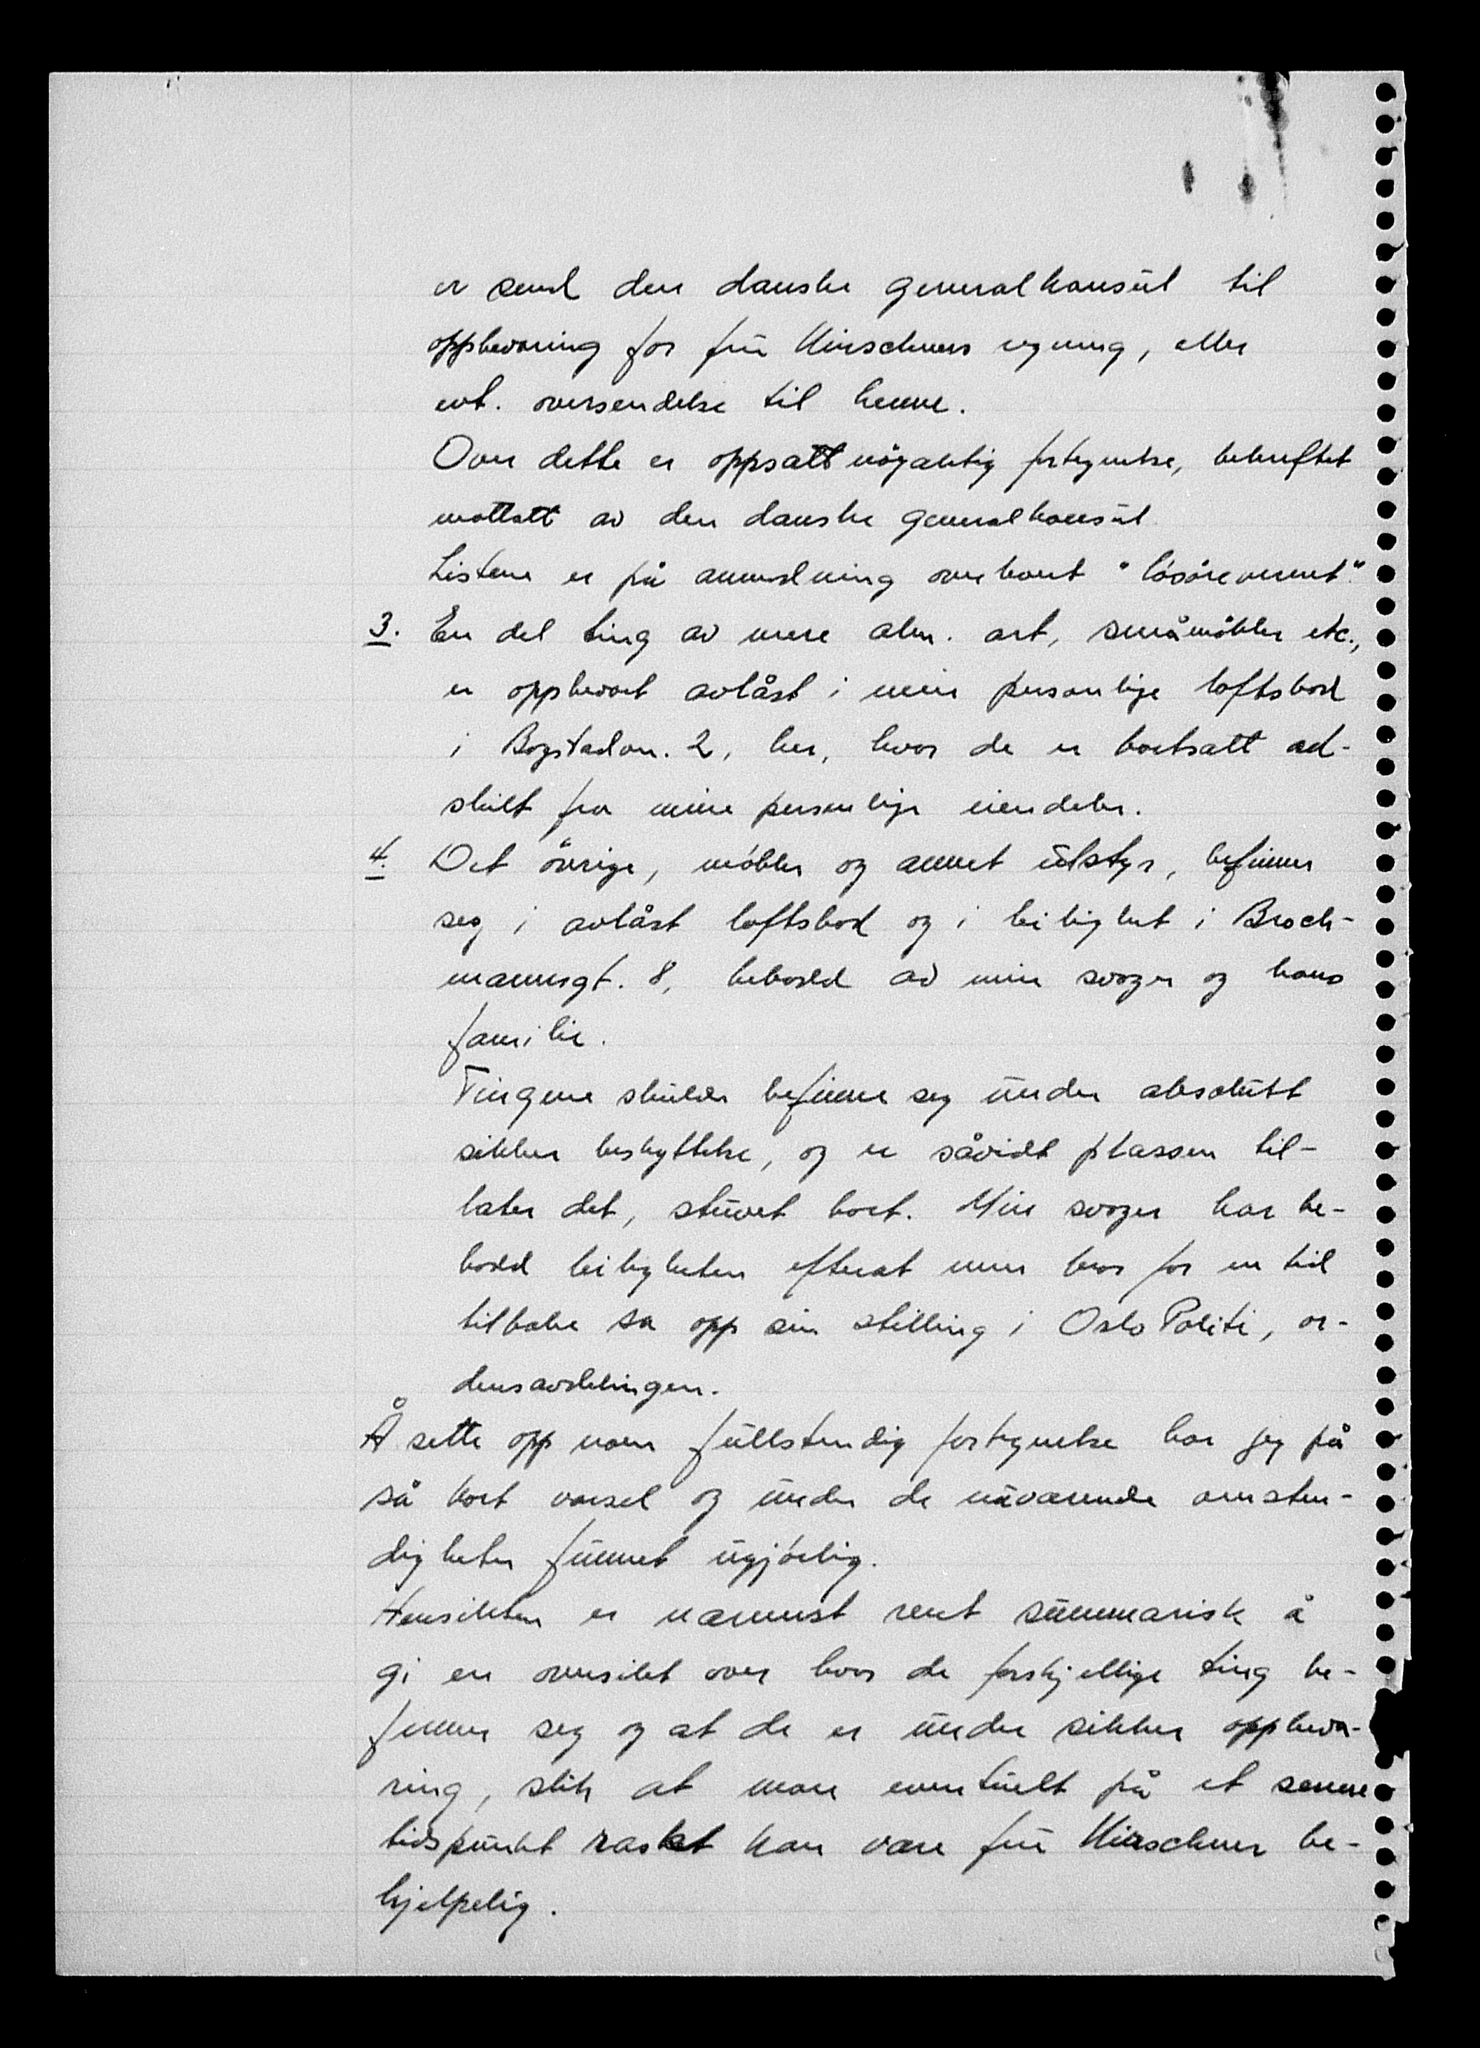 er send den danske generalkonsul til
oppbevaring for frü Hirschners regning, eller
evt. oversendelse til henne.
Over dette er oppsatt nöyaktig fortegnelse, bekreftet
mottatt av den danske generalkonsul
Listene er på anmodning overbrakt "lösöreteamet".
3. En del ting av mere alm. art, småmöbler etc.,
er oppbevart avlåst i min personlige loftsbod
i Bogstadvn. 2, her, hvor de er bortsatt ad-
skilt fra mine personlige eiendeler.
4. Det övrige, möbler og annet utstyr, befinner
seg i avlåst loftsbod og i leilighet i Broch-
mannsgt. 8, bebodd av min svoger og hans
familie.
Tingene skulde befinne seg ünder absolutt
sikker beskyttelse, og er såvidt plassen til-
later det, stüvet bort. Min svoger har be-
bodd leiligheten efterat min bror for en tid
tilbake sa opp sin stilling i Oslo Politi, or-
densavdelingen.
Å sette opp noen füllstendig fortegnelse har jeg på
så kort varsel og ünder de nåværende omsten-
digheter fünnet ugjörlig.
Hensikten er nærmest rent sümmarisk å
gi en oversikt over hvor de forskjellige ting be-
finner seg og at de er ünder sikker oppbeva-
ring, slik at man eventüelt på et senere
tidspünkt raskt kan være frü Hirschner be-
hjelpelig.